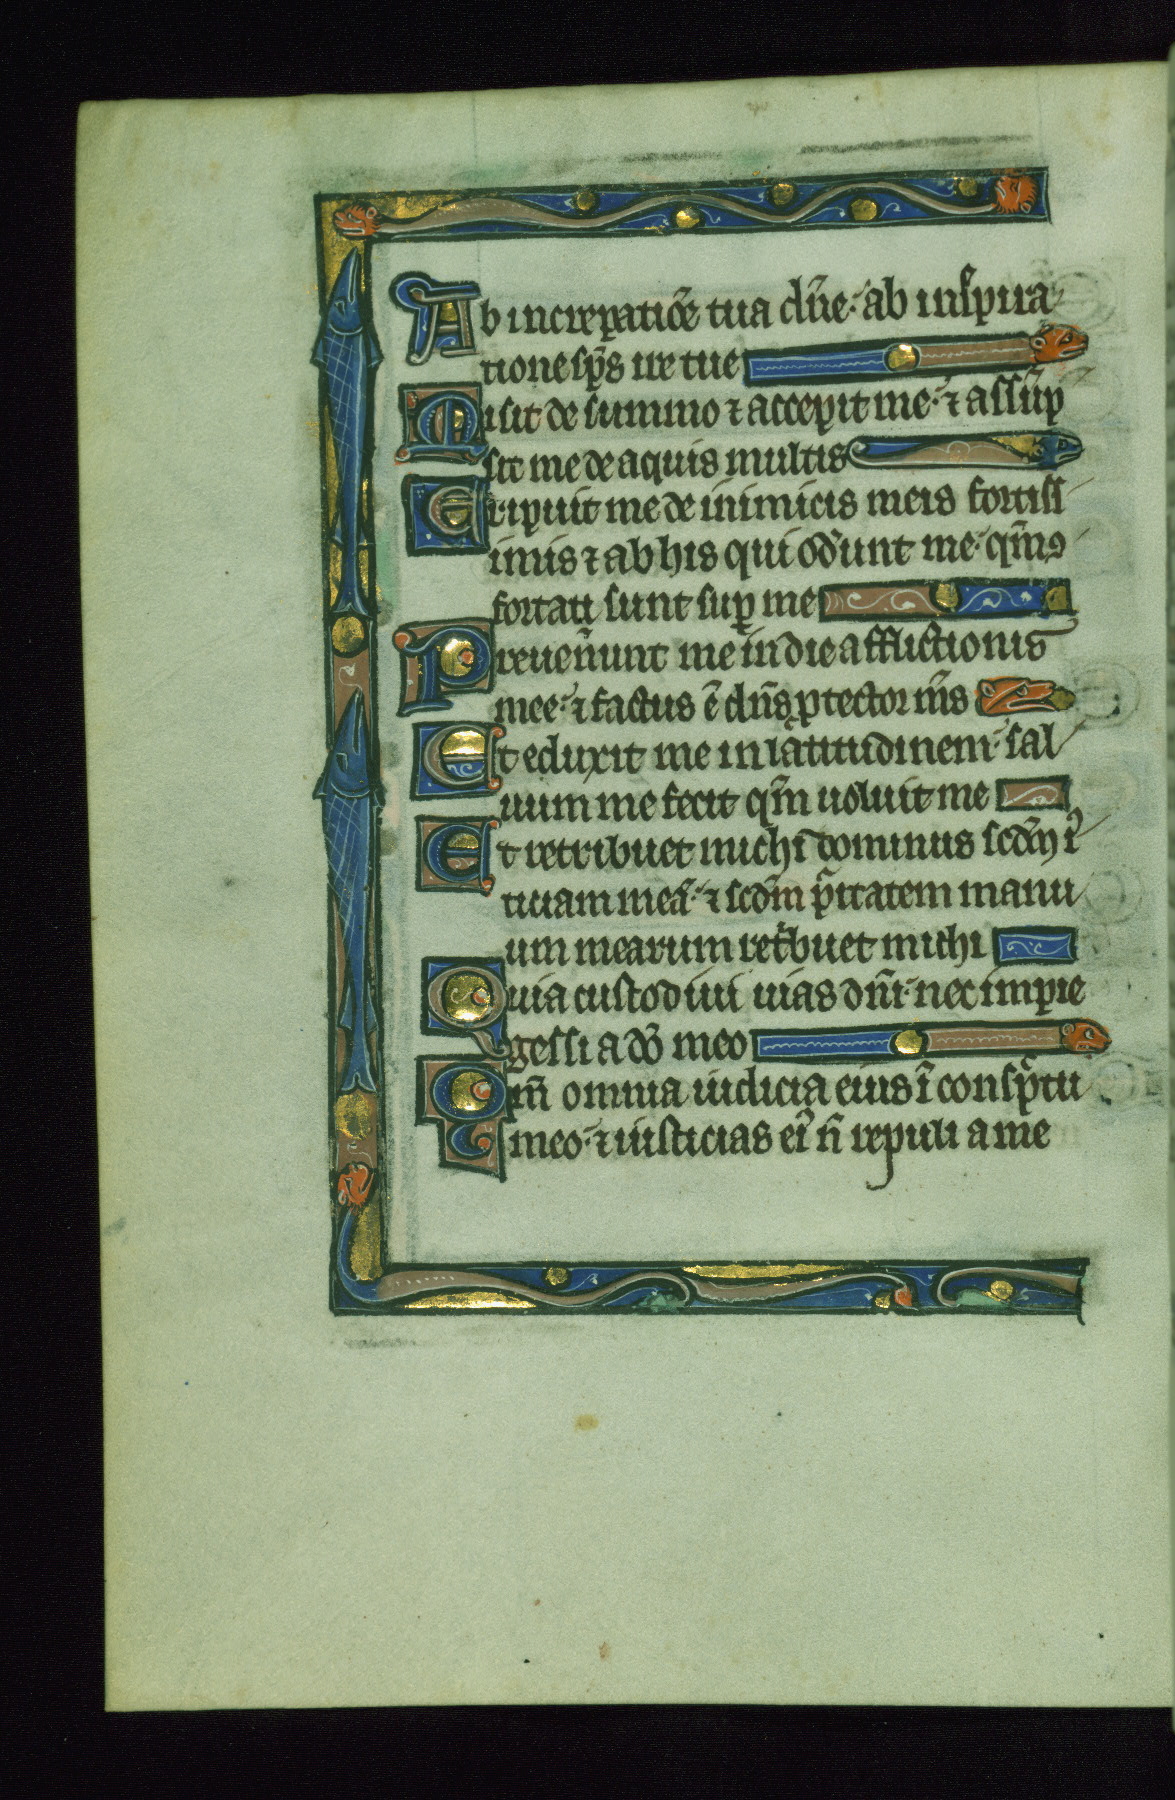 Ab increpatiōe tua dn̄e· ab inspira
tione sp̄s ire tue
Misit de summo ⁊ accepit me· ⁊ assūp
sit me de aquis multis
Eripuit me de inimicis meis fortiss
imis ⁊ ab his qui oder̄unt me· qm̄
fortati sunt sup̱ me
Preuen̄unt me in die afflictionis
mee· ⁊ factus ē dn̄s ꝓtector m̄s
Et eduxit me in latitudinem· sal
uum me fecit qm̄ uoluit me
Et retribuet michi dominus scdm̄ iꝰ
ticiam meā· ⁊ scdm̄ pͥitatem manu
um mearum ret̄buet michi
Quia custodiui uias dn̄i· nec impie
gessi a dō meo
Qm̄ omnia iudicia eius ī consp̄tu
meo· ⁊ iusticias eiꝰ n̄ repuli a me